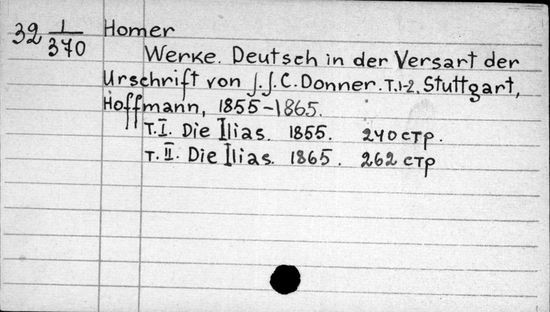 32 1/370 Homer
Werke. Deutsch in der Versart der
Urschrift von J. J. C. Donner. T. 1-2. Stuttgart,
Hoffmann, 1855-1865.
T. I. Die Ilias. 1855. 240 стр.
T. II. Die Ilias. 1865. 262 стр